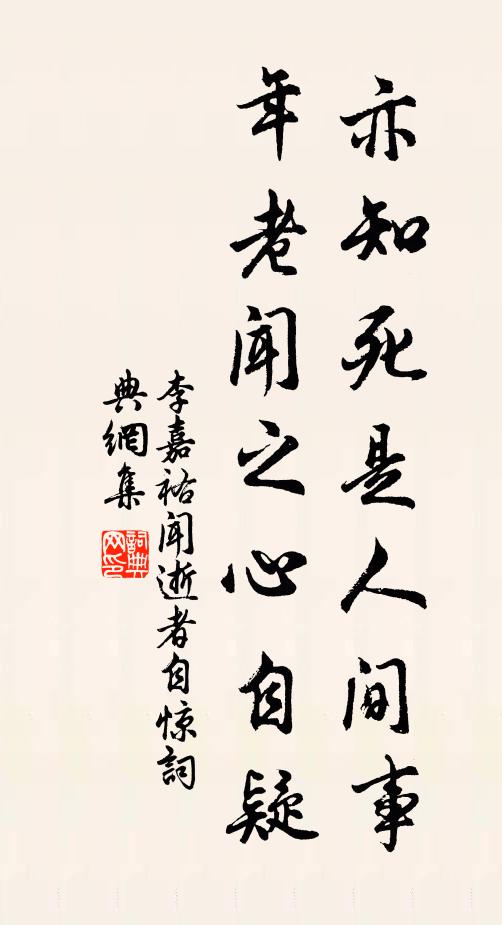 亦知死是人间事
年老闻之心自疑
李嘉祐闻逝者自惊詞
典網集
詞典网印